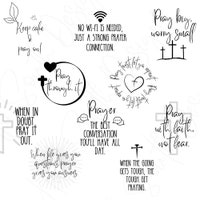 Keep calm
&
pray on!
NO WI-FI IS NEEDED,
JUST A STRONG PRAYER
CONNECTION.
Pray big,
worry small!
Pray
through it
WHEN IN
DOUBT
PRAY IT
OUT.
Prayer
THE BEST
CONVERSATION
YOU'LL HAVE ALL
DAY.
Pray
with faith,
not fear.
When life gives you
questions, prayer
gives you answers
WHEN THE GOING
GETS TOUGH, THE
TOUGH GET
PRAYING.